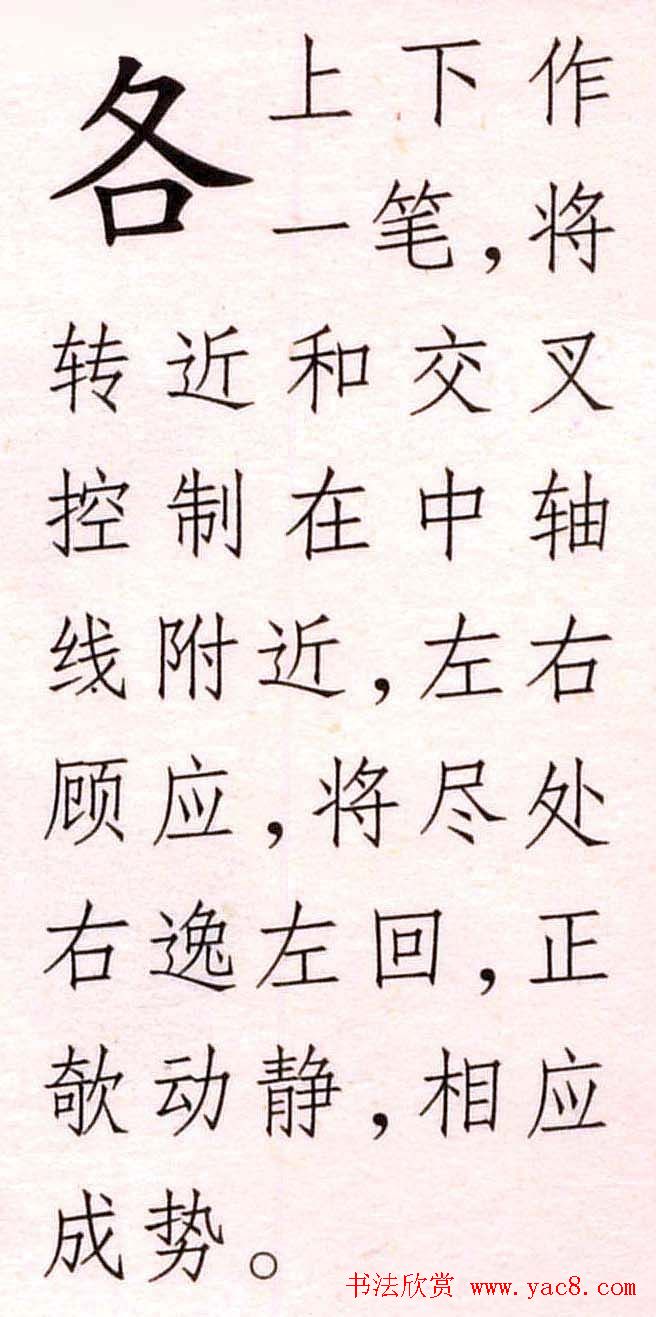 各 上下作
一笔,将
转近和交叉
控制在中轴
线附近,左右
顾应,将尽处
右逸左回,正
欹动静,相应
成势。
书法欣赏 www.yac8.com